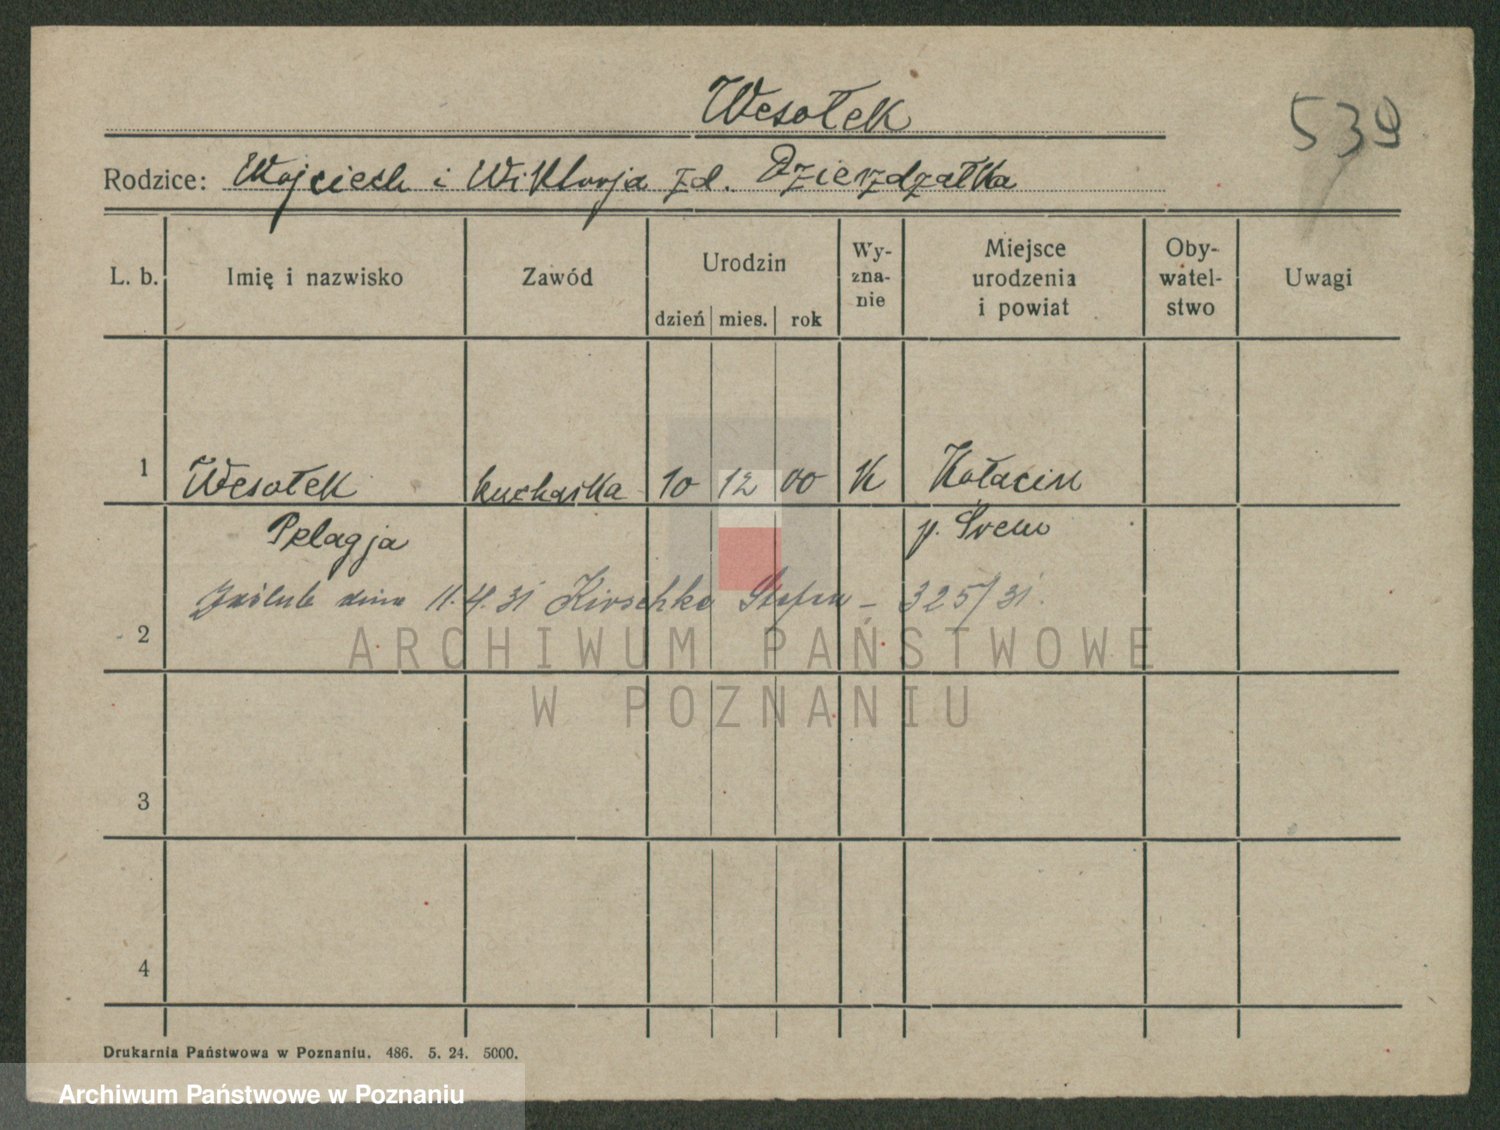 Wesołek
539
Rodzice: Wojciech i Wiktorja zd. Dzierzdzałka
L. b. Imię i nazwisko Zawód Urodzin dzień mies. rok Wy-zna-nie Miejsce urodzenia i powiat Oby-watel-stwo Uwagi
1 Wesołek kucharka 10 12 00 K Kołacin
Pelagja p. Śrem
zaślub dnia 11.4.31 Kirschke Stefan – 325/31.
2
ARCHIWUM PAŃSTWOWE
W POZNANIU
3
4
Drukarnia Państwowa w Poznaniu. 486. 5. 24. 5000.
Archiwum Państwowe w Poznaniu